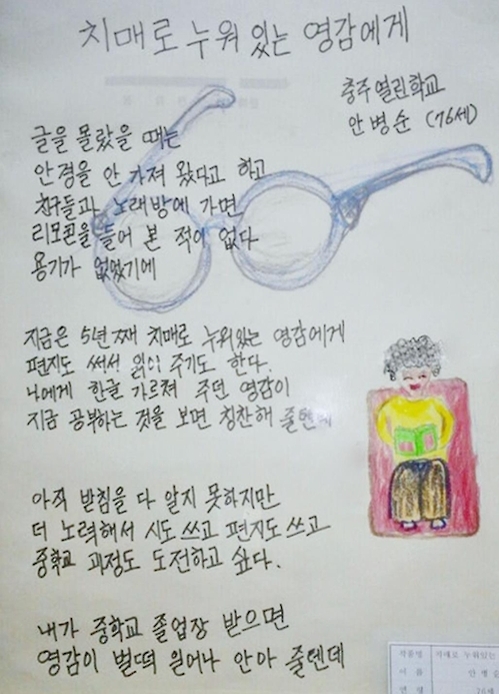 치매로 누워 있는 영감에게
충주 열린학교
안병순 (76세)
글을 몰랐을 때는
안경을 안 가져 왔다고 하고
친구들과 노래방에 가면
리모콘을 들어 본 적이 없다
용기가 없었기에
지금은 5년째 치매로 누워있는 영감에게
편지도 써서 읽어 주기도 한다.
나에게 한글 가르쳐 주던 영감이
지금 공부하는 것을 보면 칭찬해 줄텐데
아직 받침을 다 알지 못하지만
더 노력해서 시도 쓰고 편지도 쓰고
중학교 과정도 도전하고 싶다.
내가 중학교 졸업장 받으면
영감이 벌떡 일어나 안아 줄텐데
작품명 치매로 누워있는
이 름 안 병